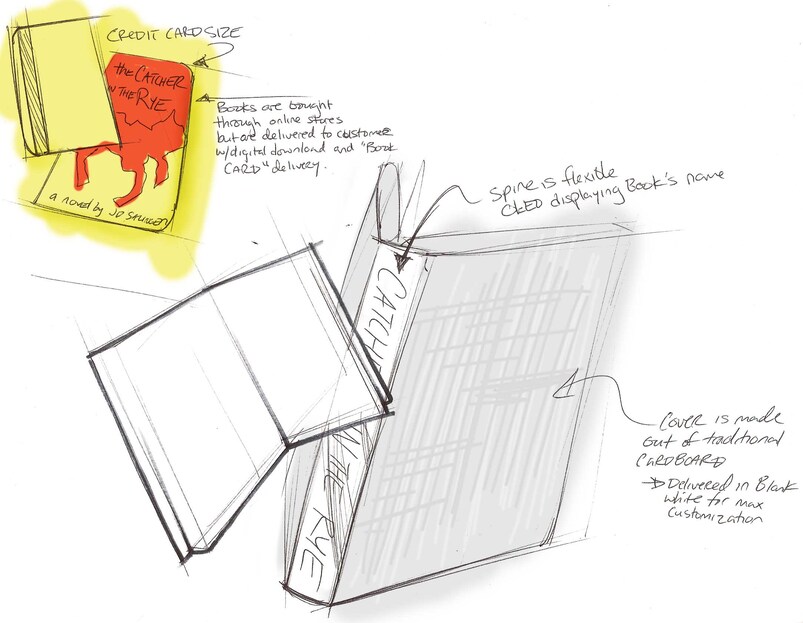 CREDIT CARD SIZE
the CATCHER
IN THE RYE
Books are bought
through online stores
but are delivered to customer
w/digital download and "Book
CARD" delivery.
a novel by JD SALINGER
spine is flexible
OLED displaying Book's name
CATCHE
IN THE RYE
Cover is made
out of traditional
CARDBOARD
Delivered in Blank
white for max
customization